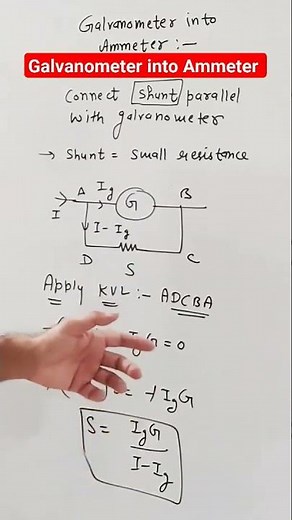 Galvanometer into
Ammeter :-
Galvanometer into Ammeter
Connect shunt parallel
with galvanometer
→ Shunt = small resistance
A Ig G B
I
I - Ig
D S C
Apply KVL :- ADCBA
IgG = 0
= + IgG
S = IgG / I - Ig